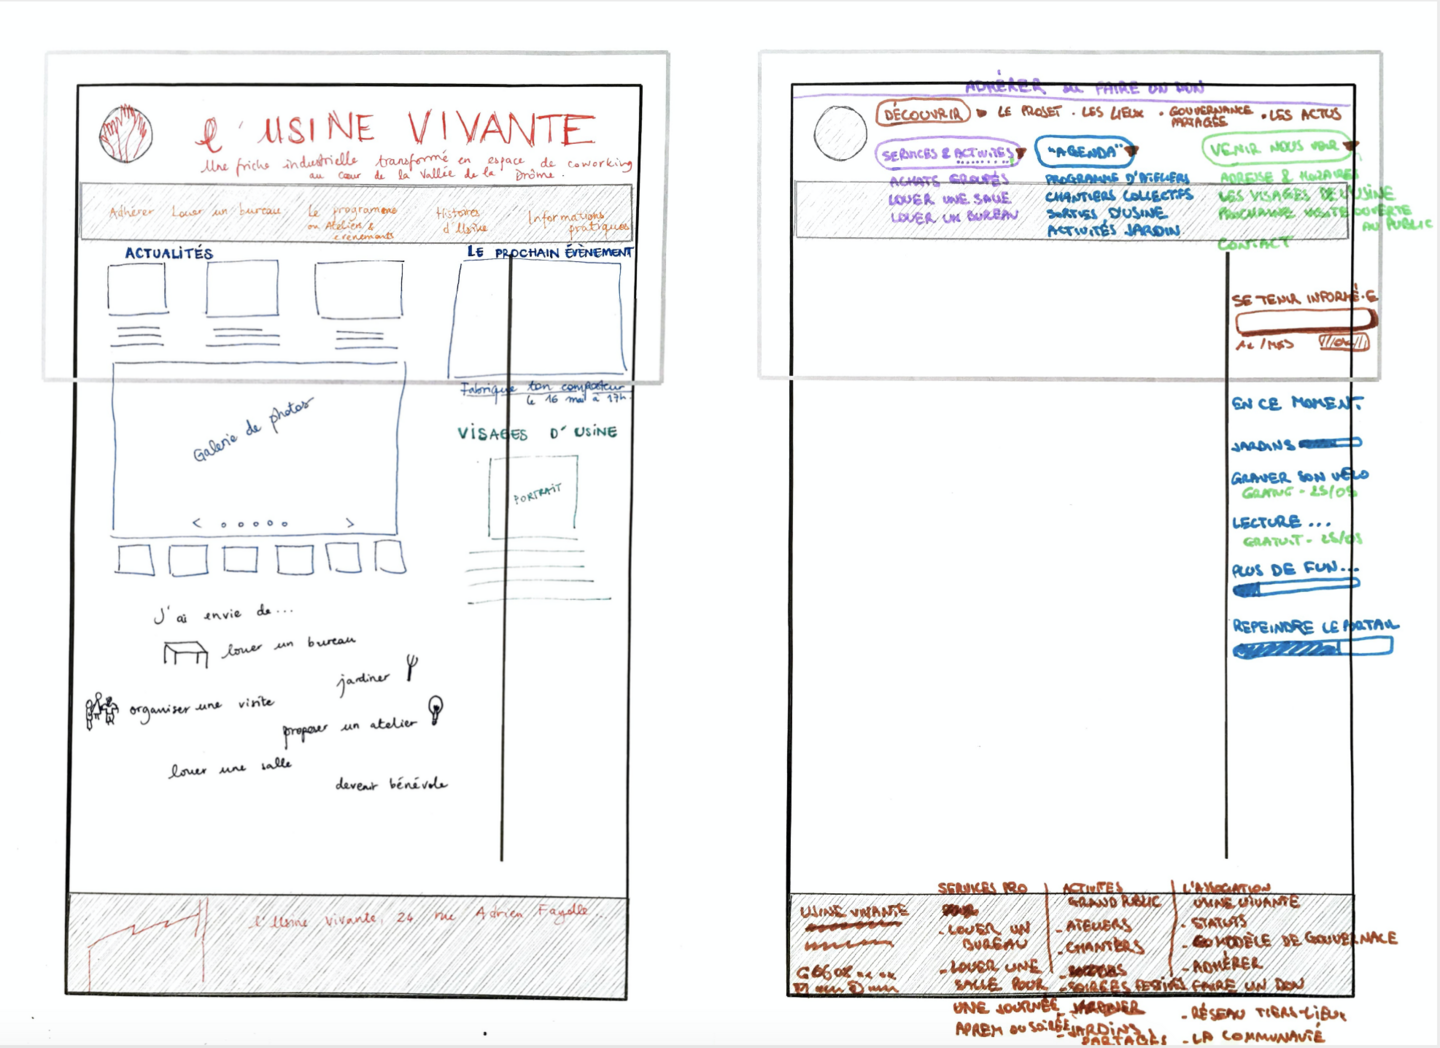 l'USINE VIVANTE
Une friche industrielle transformé en espace de coworking
au cœur de la Vallée de la Drôme.
Adhérer
Louer un bureau
Le programme
ou Ateliers
évènements
Histoires
d'Usine
Informations
pratiques
ACTUALITÉS
LE PROCHAIN ÉVÈNEMENT
Fabrique ton composteur
le 16 mai à 17h.
Galerie de photos
< >
VISAGES D'USINE
PORTRAIT
J'ai envie de...
louer un bureau
jardiner
organiser une visite
proposer un atelier
louer une salle
devenir bénévole
l'Usine Vivante, 24 rue Adrien Fayolle...
ADHÉRER ou FAIRE UN DON
DÉCOUVRIR
LE PROJET • LES LIEUX • GOUVERNANCE
PARTAGÉE
• LES ACTUS
SERVICES & ACTIVITÉS
ACHATS GROUPÉS
LOUER UNE SALLE
LOUER UN BUREAU
"AGENDA"
PROGRAMME D'ATELIERS
CHANTIERS COLLECTIFS
SORTIES D'USINE
ACTIVITÉS JARDIN
VENIR NOUS VOIR
ADRESSE & HORAIRES
LES VISAGES DE L'USINE
PROCHAINE VISITE OUVERTE
AU PUBLIC
CONTACT
SE TENIR INFORMÉ·E
EN CE MOMENT
JARDINS
GRAVER SON VÉLO
GRATUIT - 25/05
LECTURE ...
GRATUIT - 25/05
PLUS DE FUN...
REPEINDRE LE PORTAIL
USINE VIVANTE
SERVICES PRO
- LOUER UN
BUREAU
- LOUER UNE
SALLE POUR
UNE JOURNÉE
APREM OU SOIRÉE
ACTIVITÉS
GRAND PUBLIC
- ATELIERS
- CHANTIERS
- SOIRÉES
- JARDINS
PARTAGÉS
L'ASSOCIATION
USINE VIVANTE
- STATUTS
- MODÈLE DE GOUVERNACE
- ADHÉRER
FAIRE UN DON
- RÉSEAU TIERS-LIEUX
- LA COMMUNAUTÉ